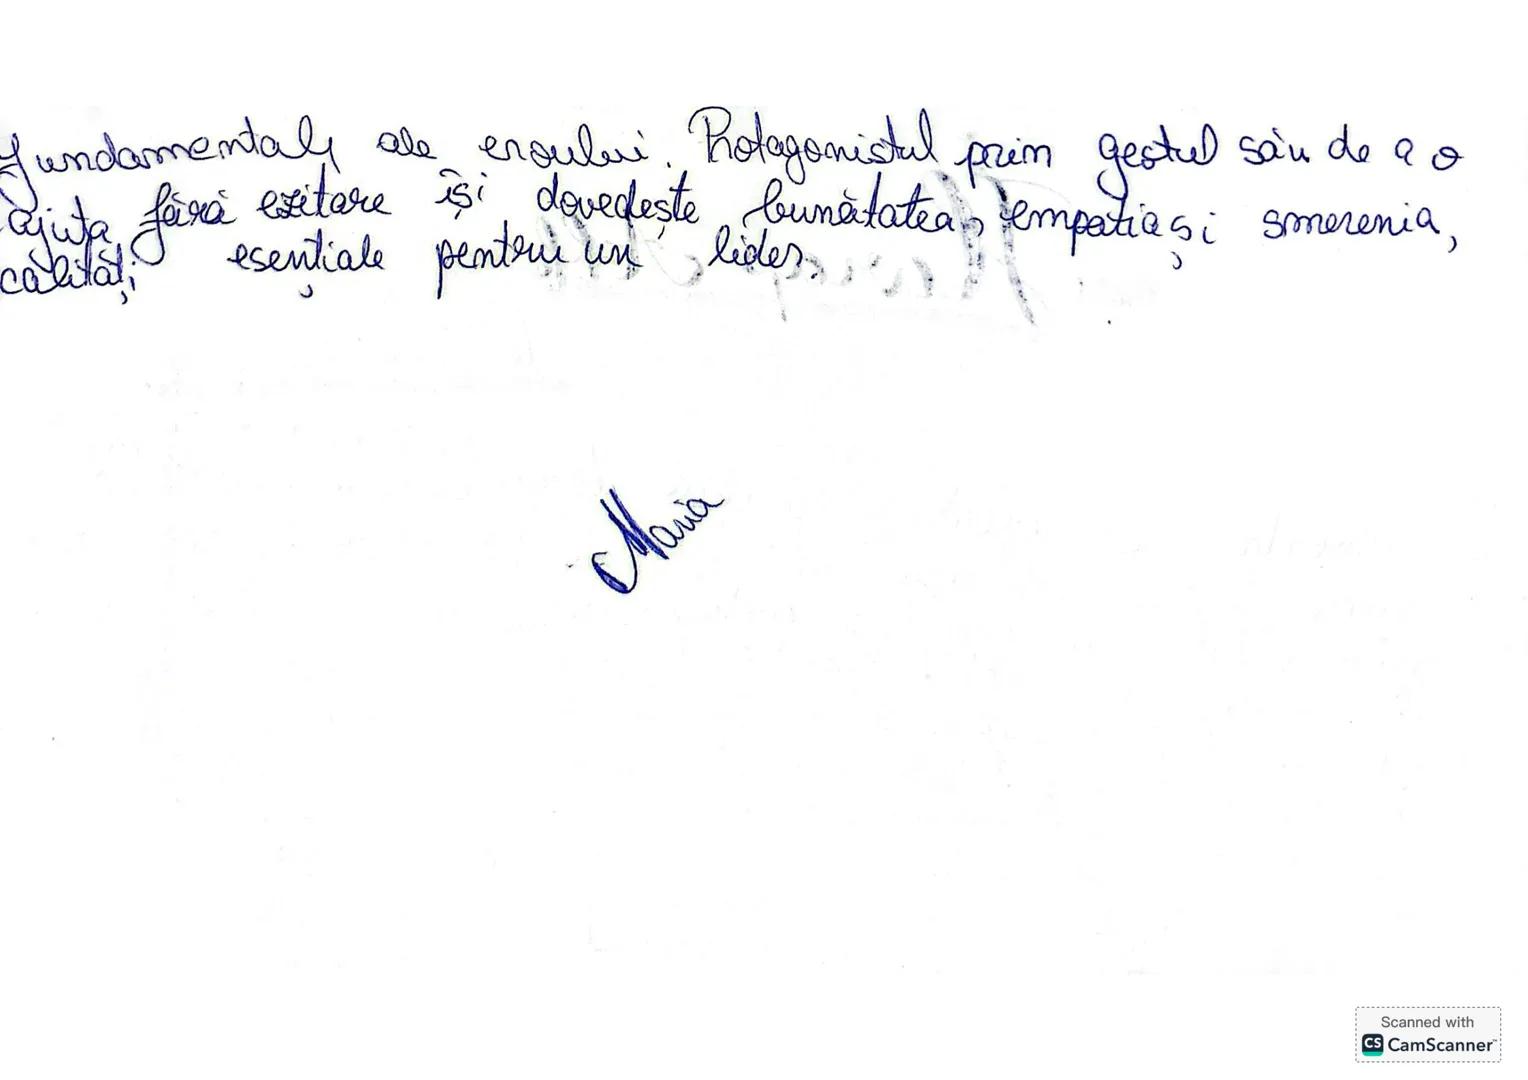 fundamentale ale eroului. Protagonistul prin gestul său de a o
ajuta fără ezitare își dovedește bunătatea, empatia și smerenia,
calități esențiale pentru un lider.
Maria
Scanned with
CS CamScanner